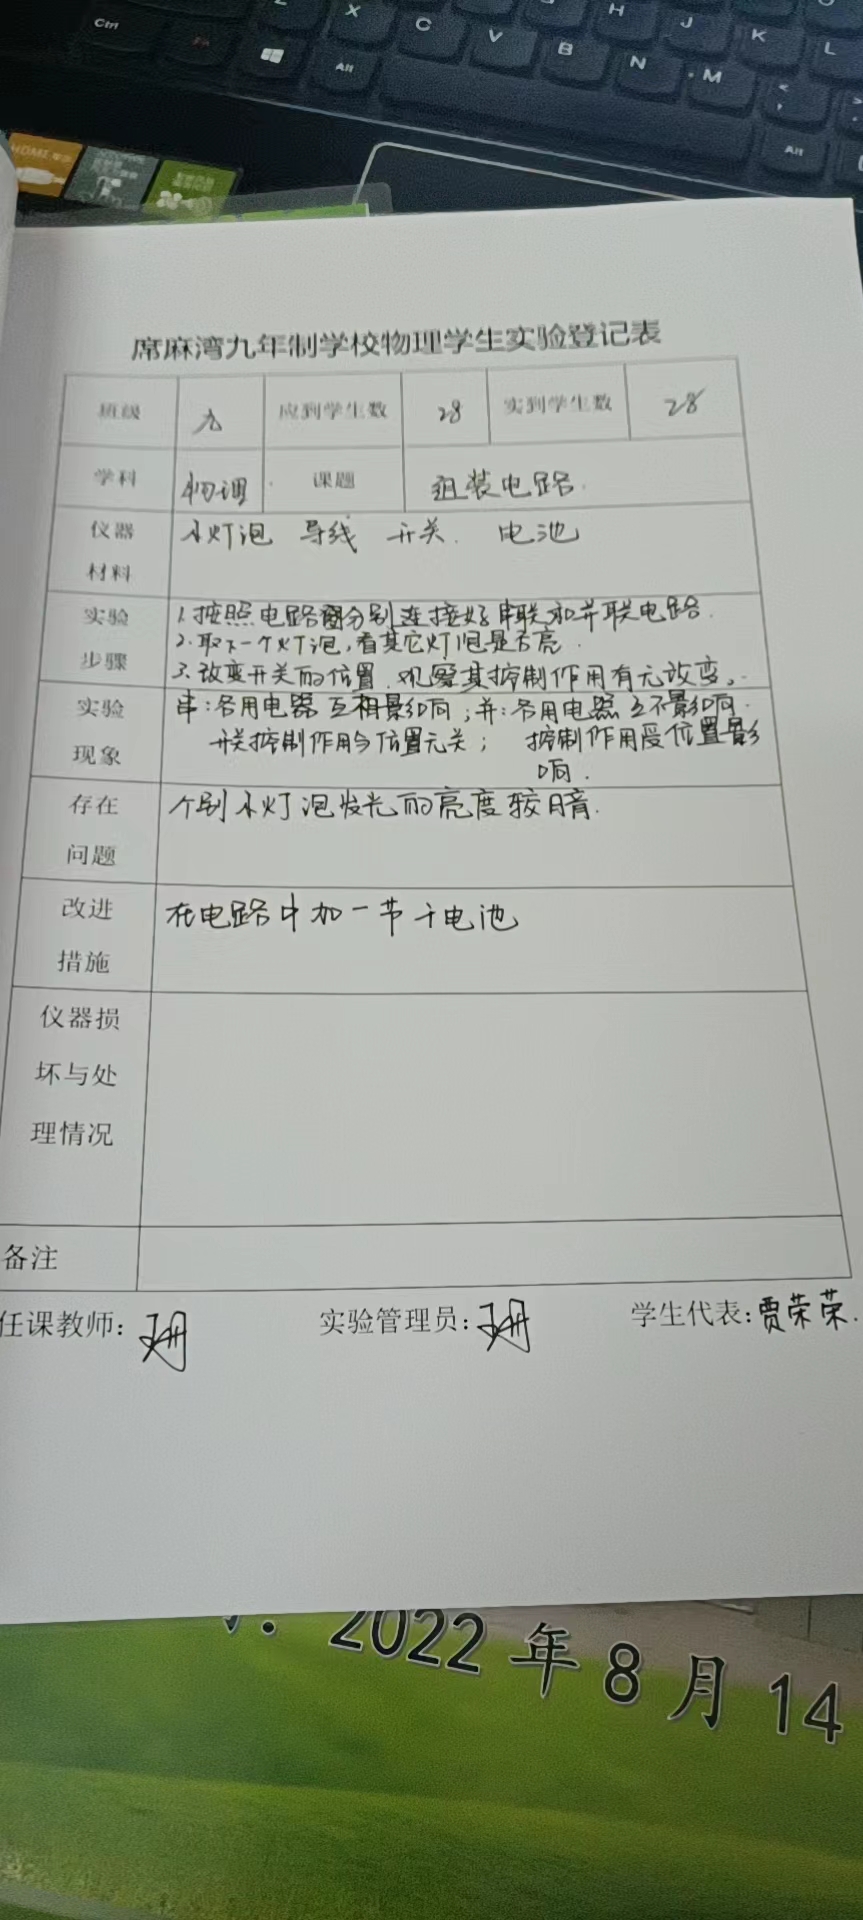 Ctrl
Fn
Alt
X
C
V
B
N
M
H
J
K
L
Alt
HDMI
席麻湾九年制学校物理学生实验登记表
班级 九 应到学生数 28 实到学生数 28
学科 物理 课题 组装电路.
仪器材料 小灯泡 导线 开关. 电池
实验步骤 1.按照电路图分别连接好串联和并联电路.
2.取下一个灯泡,看其它灯泡是否亮.
3.改变开关的位置.观察其控制作用有无改变。
实验现象 串:各用电器互相影响;并:各用电器互不影响.
开关控制作用与位置无关; 控制作用受位置影
响.
存在问题 个别小灯泡发光的亮度较暗.
改进措施 在电路中加一节干电池
仪器损坏与处理情况
备注
任课教师: 实验管理员: 学生代表:贾荣荣.
2022年8月14